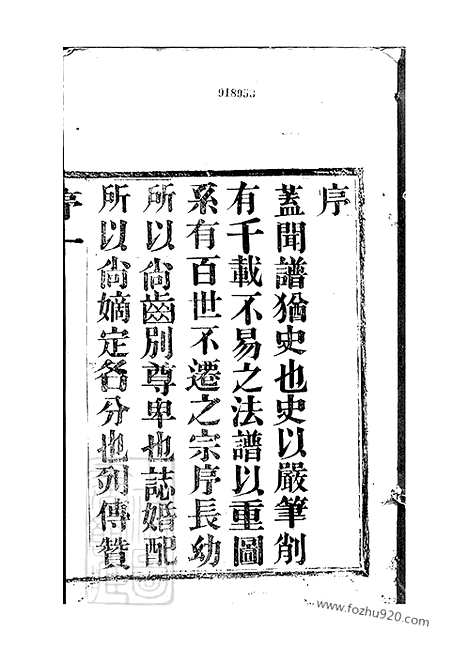 918955
序
蓋聞譜猶史也史以嚴筆削
有千載不易之法譜以重圖
系有百世不遷之宗序長幼
所以尚齒別尊卑也誌婚配
所以尚嫡定名分也列傳贊
序一
www.fozhu920.com